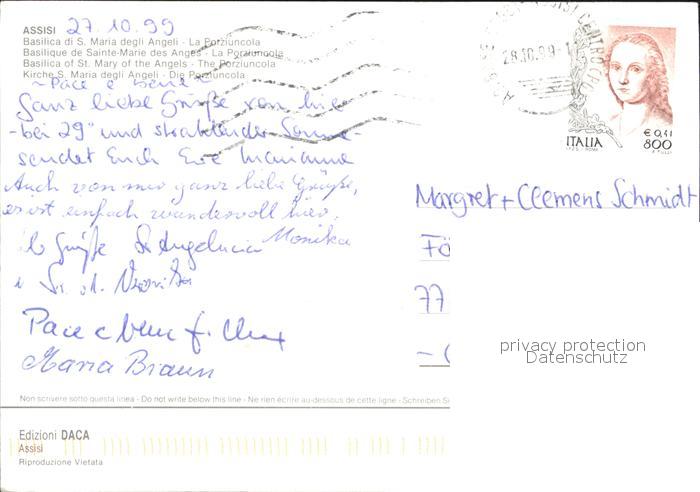 ASSISI 27.10.99
Basilica di S. Maria degli Angeli - La Porziuncola
Basilique de Sainte-Marie des Anges - La Porziuncola
Basilica of St. Mary of the Angels - The Porziuncola
Kirche S. Maria degli Angeli - Die Porziuncola
~ Pace e bene ~
Ganz liebe Grüße von hier
- bei 29° und strahlender Sonne -
sendet Euch Eure Marianne
Auch von mir ganz liebe Grüße,
es ist einfach wundervoll hier.
Monika
lb Grüße Sr Angelucia
Pace e bene
Maria Braun
Non scrivere sotto questa linea - Do not write below this line - Ne rien écrire au-dessous de cette ligne - Schreiben Si
Edizioni DACA
Assisi
Riproduzione Vietata
28.10.99
ITALIA
€ 0,41
800
Margret + Clemens Schmidt
Fö
77
privacy protection
Datenschutz